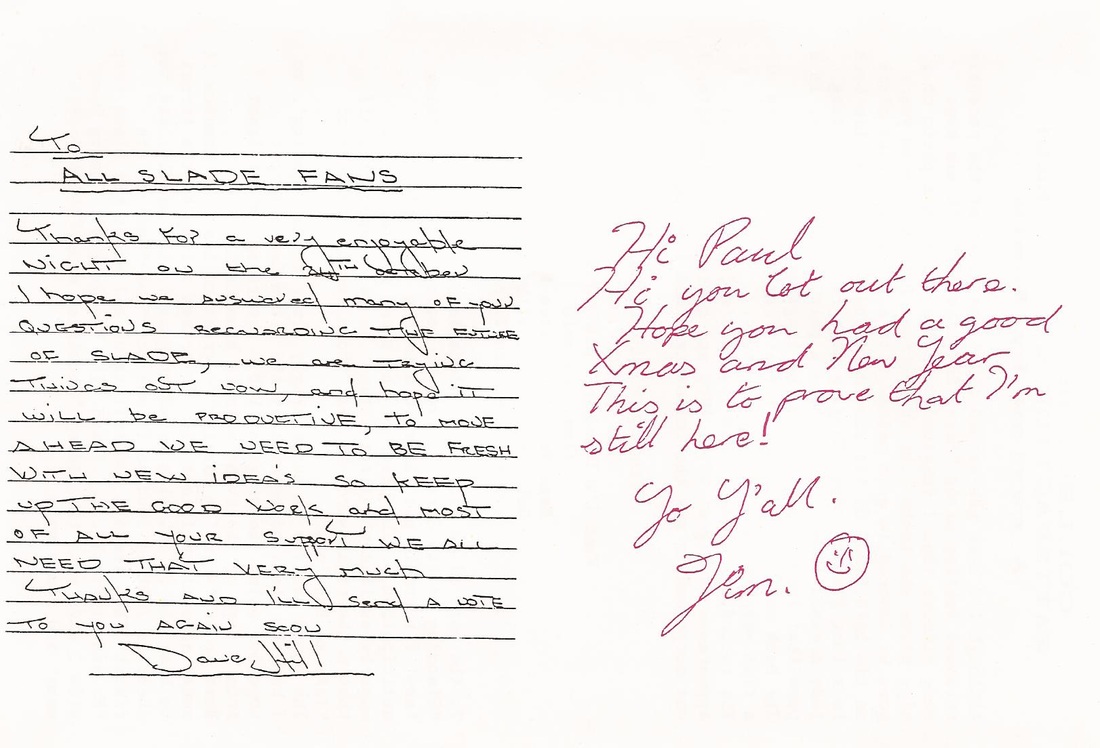 To
ALL SLADE FANS
Thanks for a very enjoyable
NIGHT ON the 24TH October
I hope we answered many OF your
QUESTIONS REGUARDING THE FUTURE
OF SLADE, we are TRYING
THINGS OUT NOW, and hope IT
WILL be PRODUCTIVE, TO MOVE
AHEAD WE NEED TO BE FRESH
WITH NEW IDEA'S SO KEEP
UP THE GOOD Work and MOST
OF ALL YOUR Support WE ALL
NEED THAT VERY Much
THANKS AND I'LL Send A NOTE
TO you AGAIN SOON
Dave Hill
Hi Paul
Hi you lot out there.
Hope you had a good
Xmas and New Year
This is to prove that I'm
still here!
Yo Y'all.
Jim.